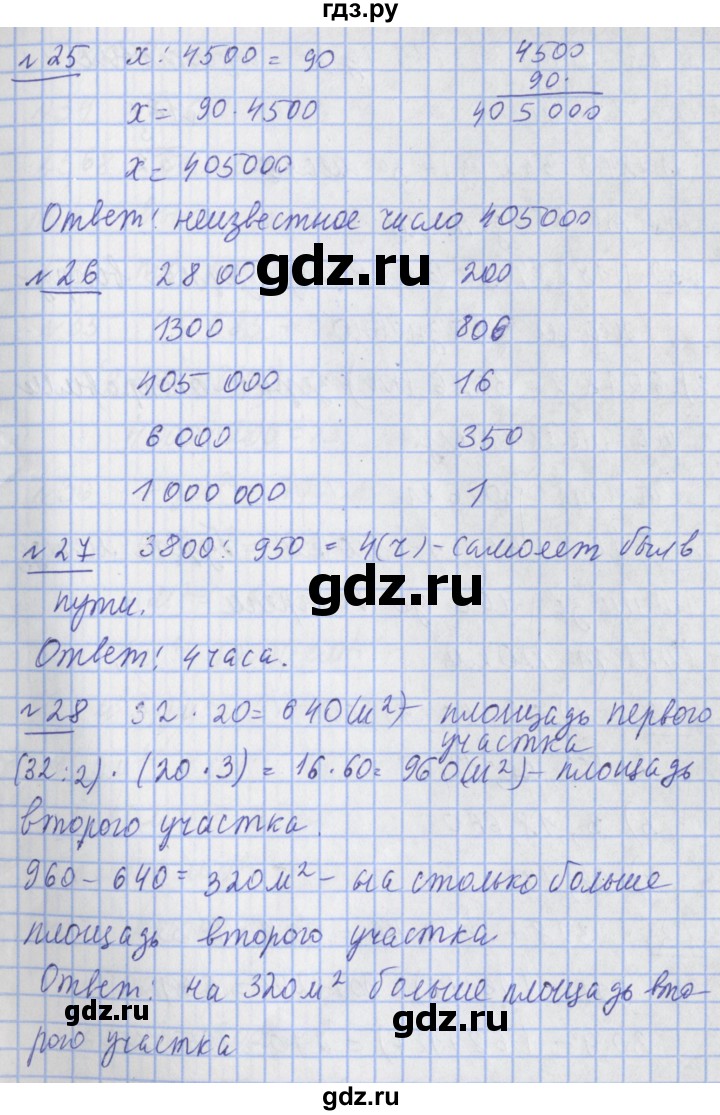 гдз.ру
№25 х : 4500 = 90
4500
90
405000
х = 90 · 4500
х = 405000
Ответ: неизвестное число 405000
gdz.ru
№26 2800 200
1300 806
405 000 16
6 000 350
1 000 000 1
№27 3800 : 950 = 4(ч) - самолет был в
gdz.ru
пути.
Ответ: 4 часа.
gdz.ru
№28 32 · 20 = 640(м²) - площадь первого
участка
(32:2) · (20 · 3) = 16 · 60 = 960(м²) - площадь
второго участка.
960 - 640 = 320м² - на столько больше
площадь второго участка
Ответ: на 320м² больше площадь вто-
gdz.ru
рого участка
gdz.ru